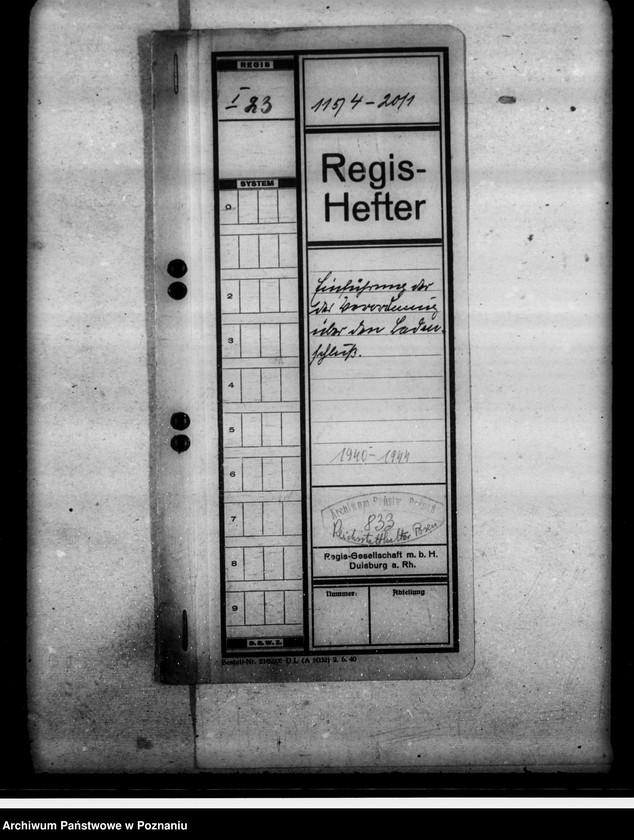 REGIS
I 23
115/4-20/1
Regis-
Hefter
SYSTEM
0
2
3
4
5
6
7
8
9
Einführung der
der Verordnung
über den Laden-
schluß.
1940-1944
Archiwum Państw. Poznań
833
Reichsstatthalter Posen
Regis-Gesellschaft m. b. H.
Duisburg a. Rh.
Nummer:
Abteilung
D. R. W. Z.
Bestell-Nr.
2. 6. 40
Archiwum Państwowe w Poznaniu